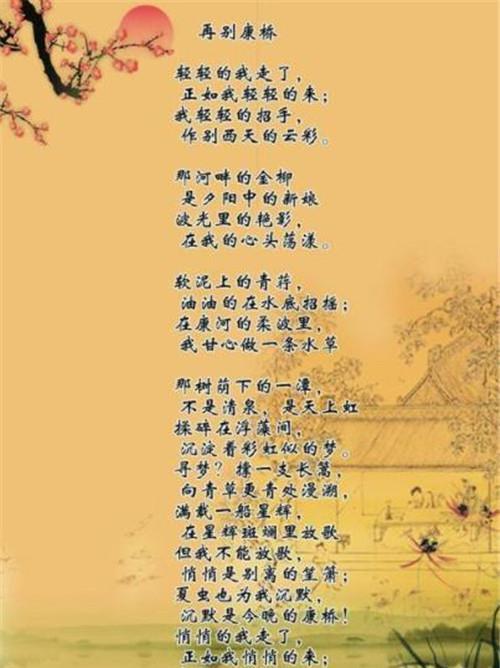 再别康桥
轻轻的我走了，
正如我轻轻的来；
我轻轻的招手，
作别西天的云彩。
那河畔的金柳
是夕阳中的新娘
波光里的艳影，
在我的心头荡漾。
软泥上的青荇，
油油的在水底招摇；
在康河的柔波里，
我甘心做一条水草
那树荫下的一潭，
不是清泉，是天上虹
揉碎在浮藻间，
沉淀着彩虹似的梦。
寻梦？撑一支长篙，
向青草更青处漫溯，
满载一船星辉，
在星辉斑斓里放歌
但我不能放歌，
悄悄是别离的笙箫；
夏虫也为我沉默，
沉默是今晚的康桥！
悄悄的我走了，
正如我悄悄的来；